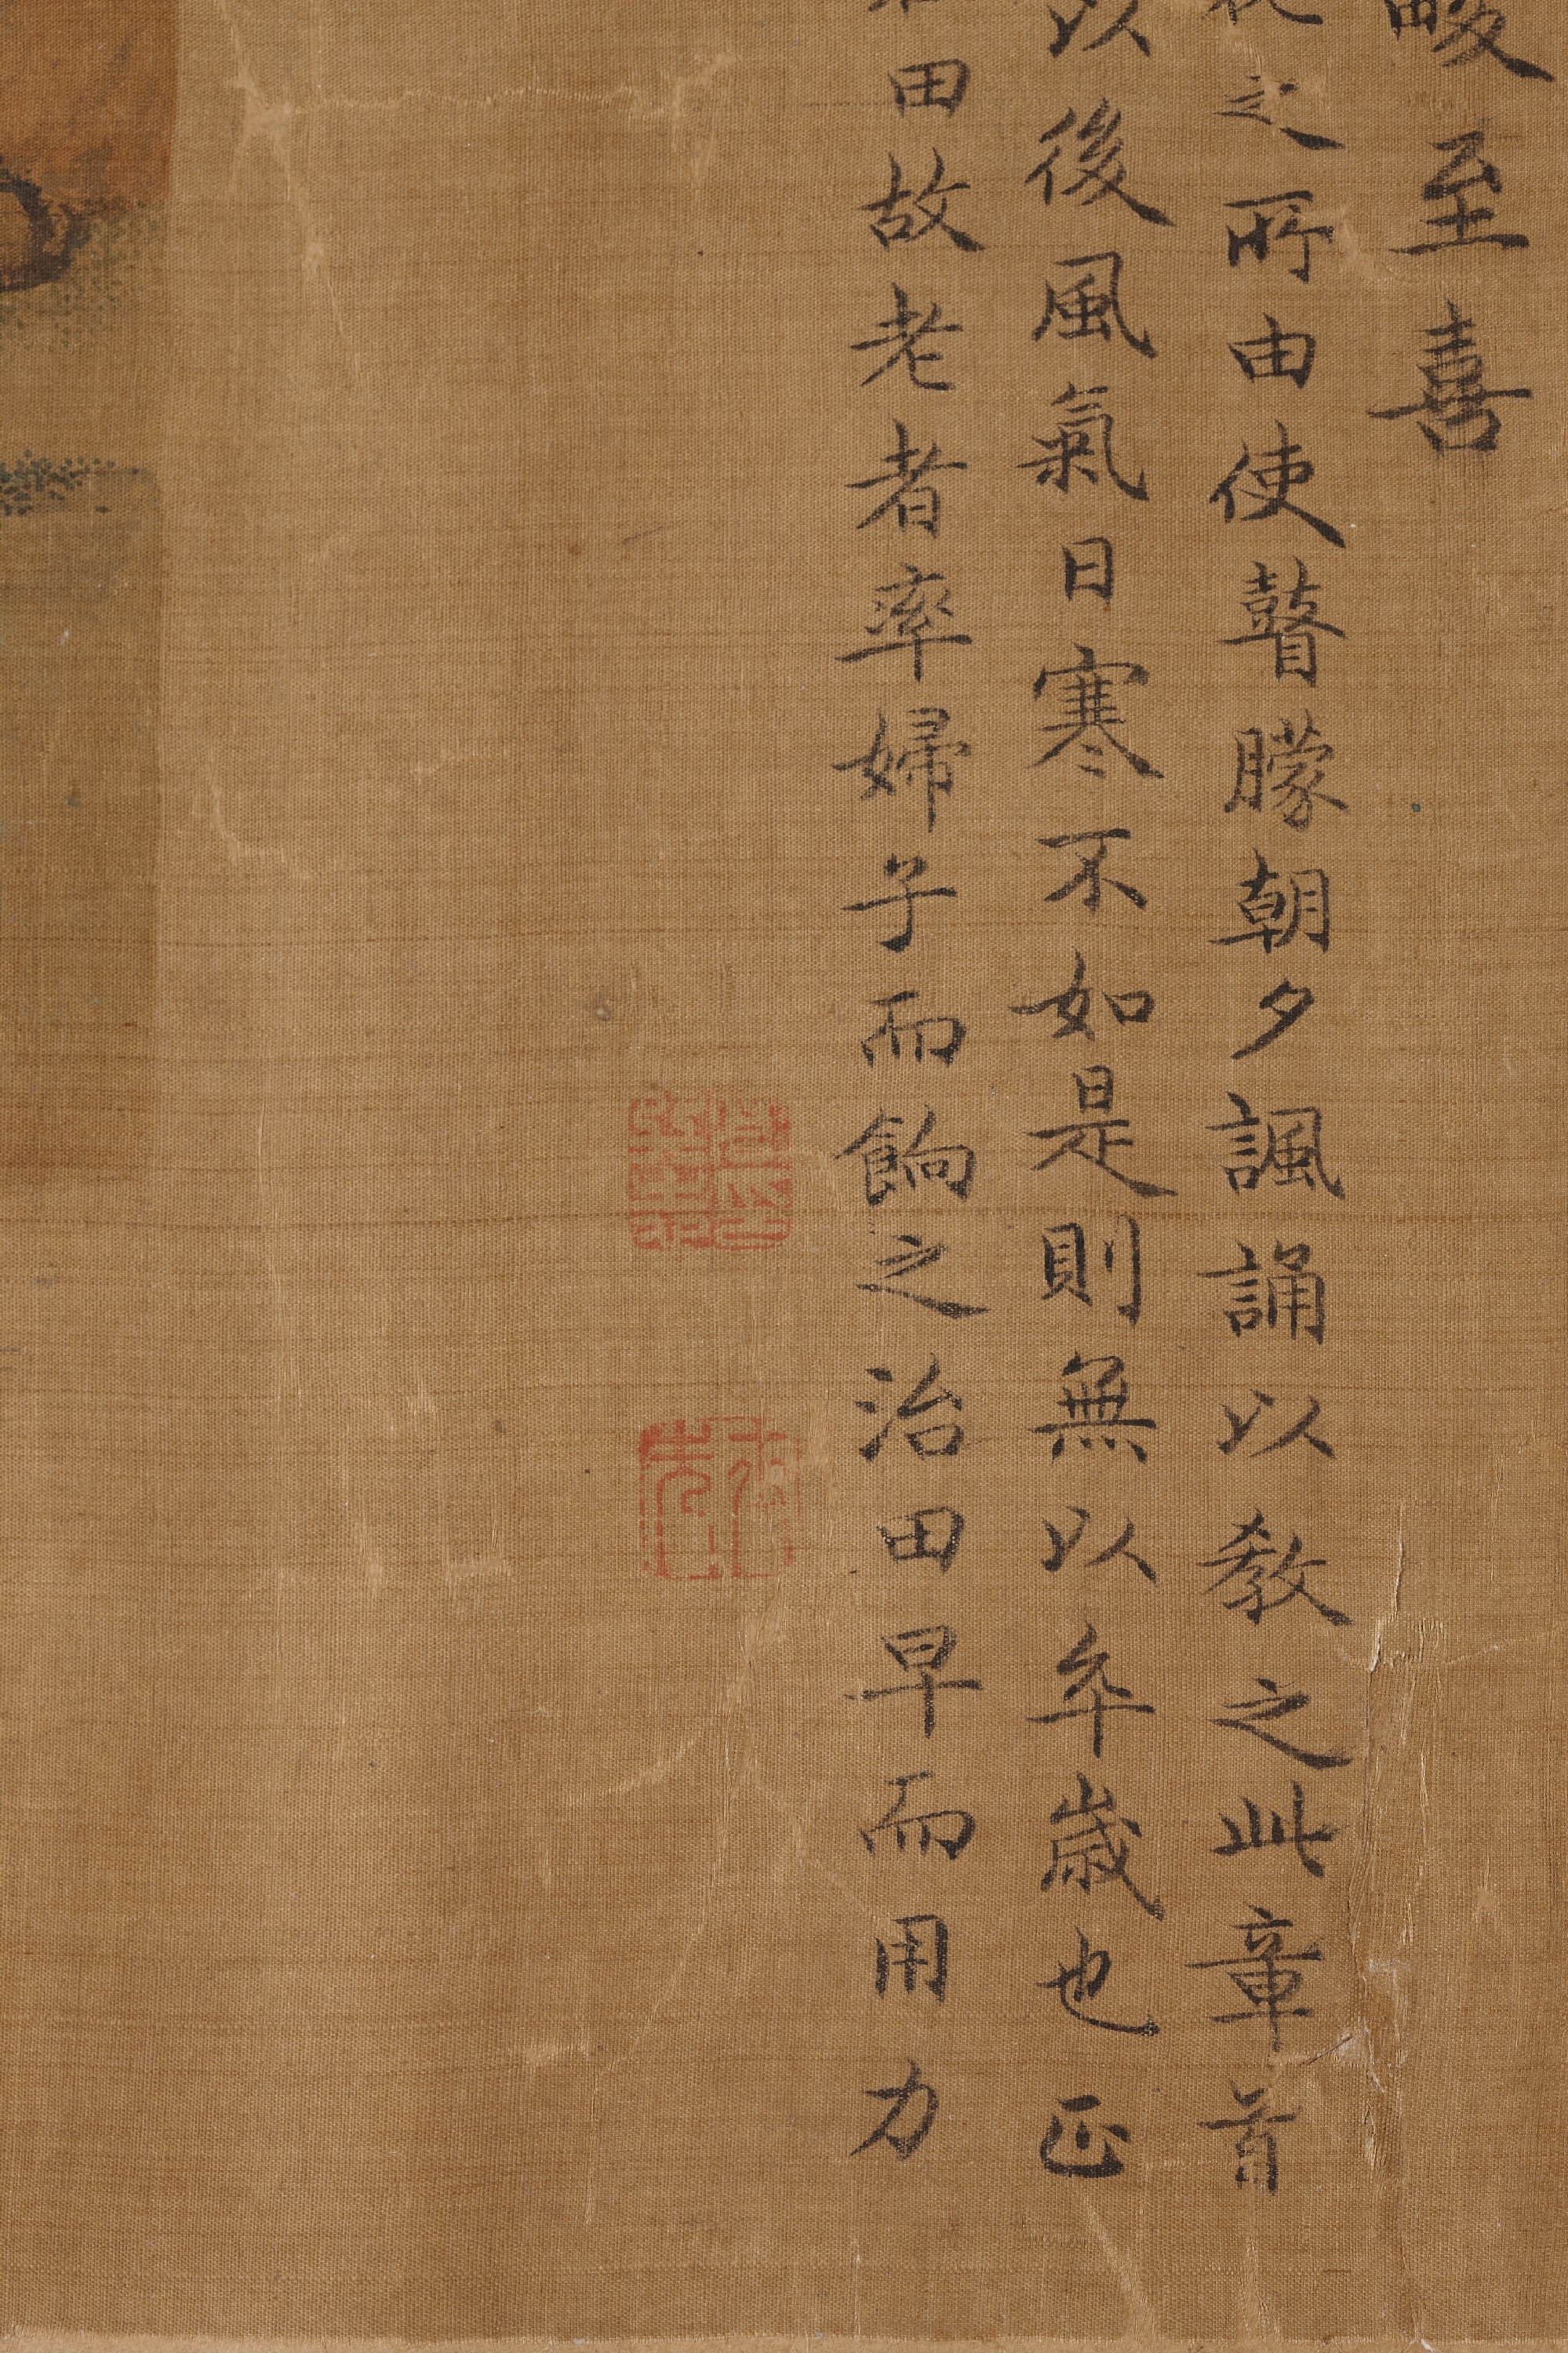 畯至喜
之所由使瞽矇朝夕諷誦以教之此章首
以後風氣日寒不如是則無以卒歲也正
田故老者率婦子而餉之治田早而用力